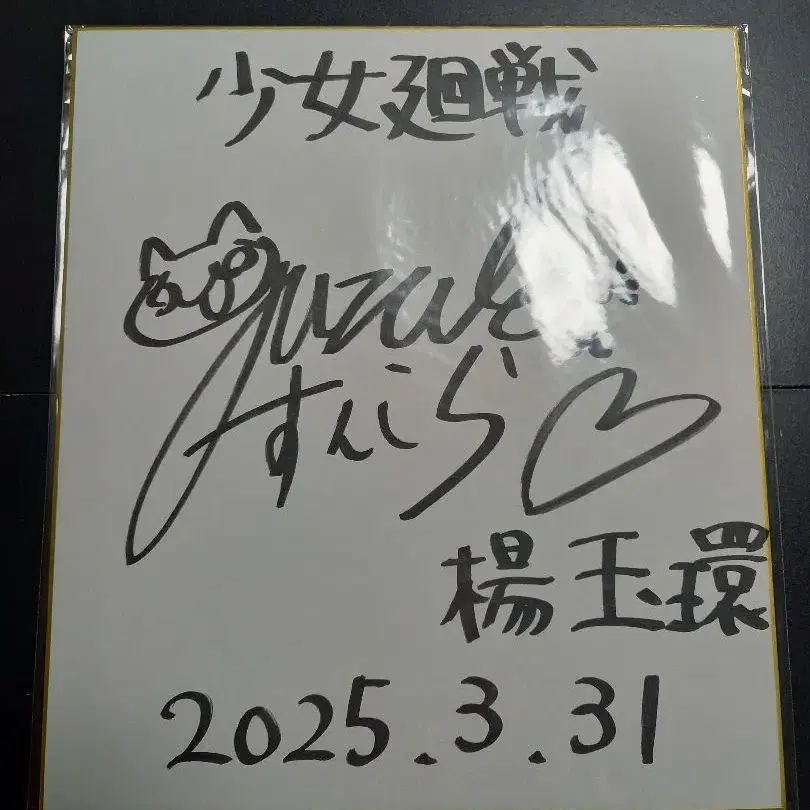 少女廻戦
すんしら
楊玉環
2025.3.31